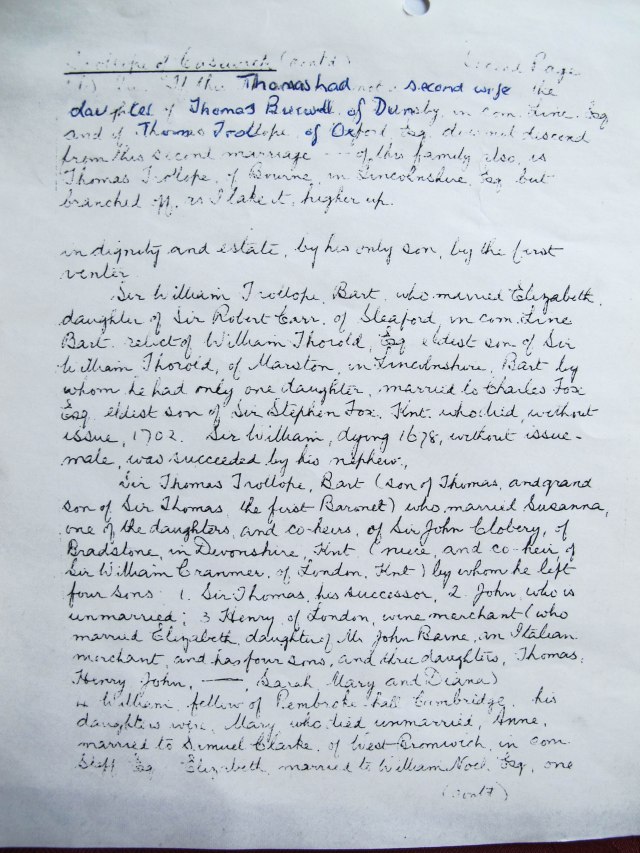 Trollope of Casewick (contd) Second Page
Thomas had not second wife the
daughter of Thomas Burwell, of Dunsby, in com. Linc. Esq
and if Thomas Trollope, of Oxford Esq. did not discend
from this second marriage — of this family also, is
Thomas Trollope, of Bourne, in Lincolnshire, Esq but
branched off, as I take it, higher up.
in dignity and estate, by his only son, by the first
venter
Sir William Trollope, Bart, who married Elizabeth,
daughter of Sir Robert Carr, of Sleaford, in com. Linc
Bart. relict of William Thorold, Esq eldest son of Sir
William Thorold, of Marston, in Lincolnshire, Bart by
whom he had only one daughter, married to Charles Fox
Esq. eldist son of Sir Stephen Fox, Knt. who died, without
issue, 1702. Sir William, dying 1678, without issue-
male, was succeeded by his nephew,
Sir Thomas Trollope, Bart (son of Thomas, and grand
son of Sir Thomas, the first Baronet) who married Susanna,
one of the daughters, and co-heirs, of Sir John Clobery, of
Bradstone, in Devonshire, Knt (niece, and co-heir, of
Sir William Cranmer, of London, Knt) by whom he left
four sons 1. Sir Thomas, his successor, 2. John, who is
unmarried; 3 Henry, of London, wine merchant (who
married Elizabeth, daughter of Mr John Barne, an Italian
merchant, and has four sons, and three daughters, Thomas,
Henry John, ——, Sarah Mary and Diana)
4 William, fellow of Pembroke Hall Cambridge, his
daughters were, Mary who died unmarried, Anne,
married to Simuel Clarke, of West Bromwich, in com
Staff Esq Elizabeth, married to William Noel Esq, one
(contd)